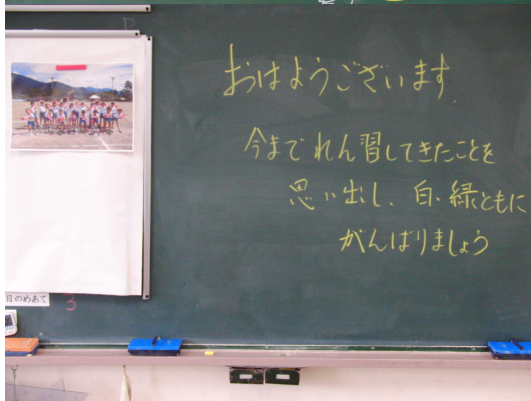 おはようございます。
今までれん習してきたことを
思い出し、白、緑ともに
がんばりましょう
日のめあて
3